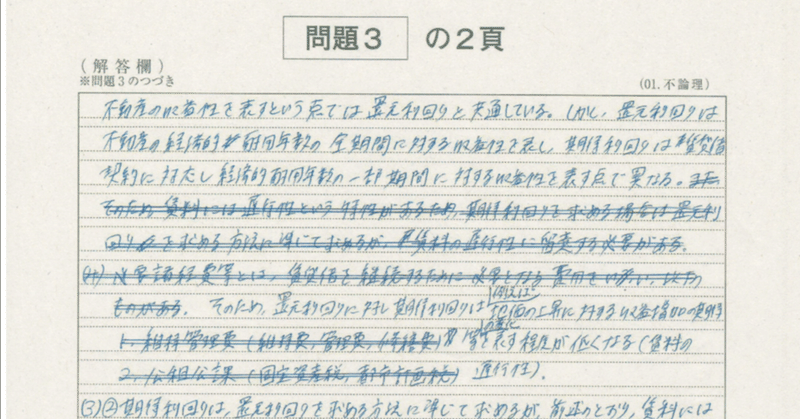 問題3 の2頁
(解答欄)
※問題3のつづき
(01.不論理)
不動産の収益性を表すという点では還元利回りと共通している。しかし、還元利回りは
不動産の経済的耐用年数の全期間に対する収益性を表し、期待利回りは賃貸借
契約に対応し経済的耐用年数の一部期間に対する収益性を表す点で異なる。また
そのため賃料には遅行性という特性があるため、期待利回りを求める場合は還元利
回りを求める方法に準じて求めるが、賃料の遅行性に留意する必要がある。
必要諸経費等とは、賃貸借を継続するために必要となる費用をいい、以下の
ものがある。 そのため、還元利回りに対し期待利回りは 例えば 地価の上昇に対する収益増加の期待
1. 維持管理費(維持費、管理費、修繕費) の変化 等を表す程度が低くなる(賃料の
2. 公租公課(固定資産税、都市計画税) 遅行性)。
(3)②期待利回りは、還元利回りを求める方法に準じて求めるが、前述のとおり、賃料には